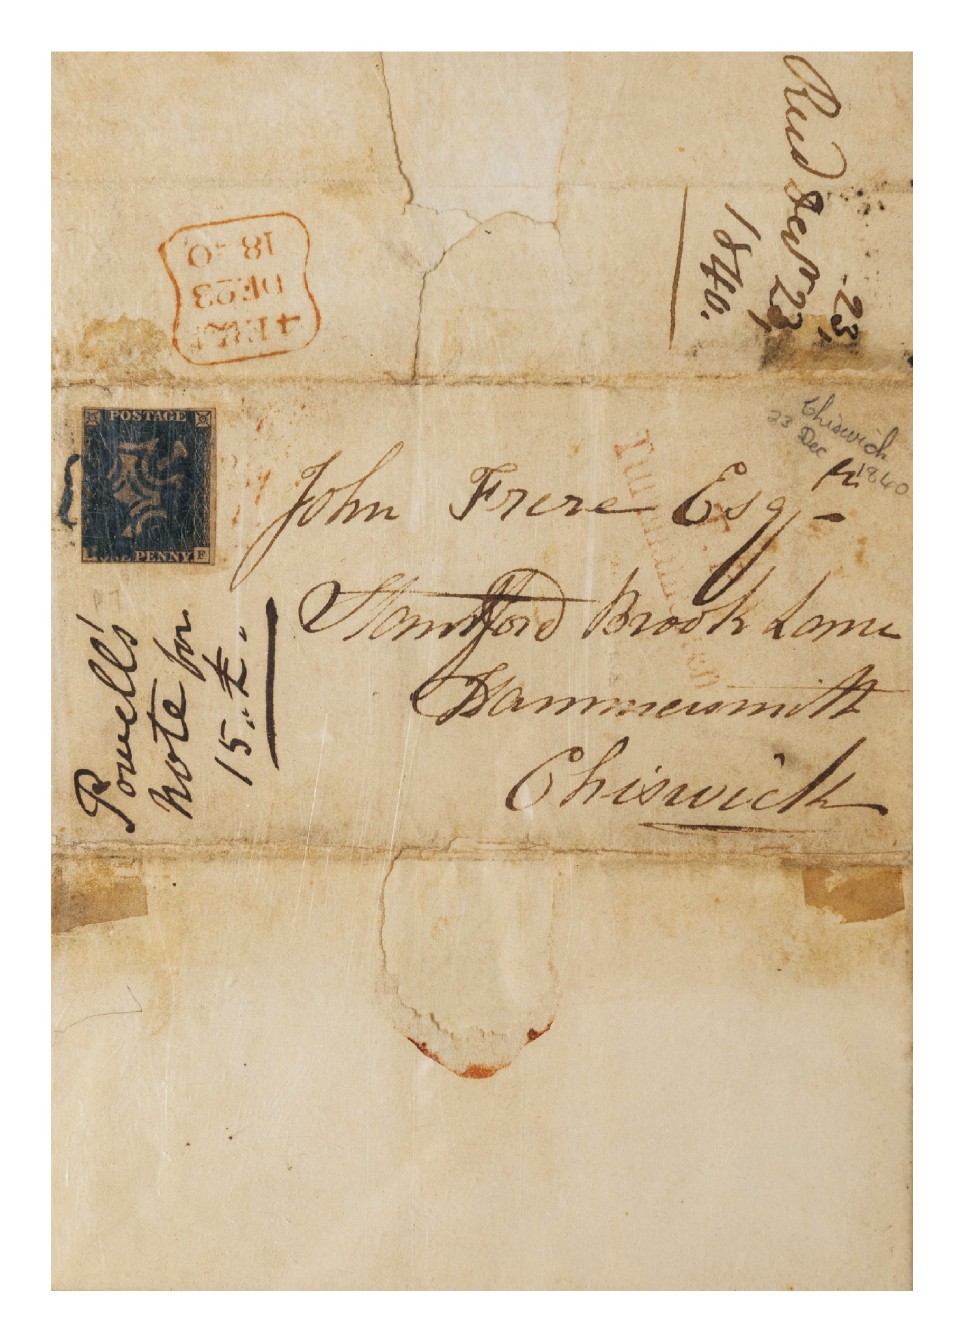 Recd Decr 23,
1840.
23
4 EV 4
DE 23
1840
POSTAGE
ONE PENNY
F
Chiswick
23 Dec 1840
T.P
Turnham Green
John Frere Esqr
Stamford Brook Lane
Hammersmith
Chiswick
Powell's
note for
15..£..